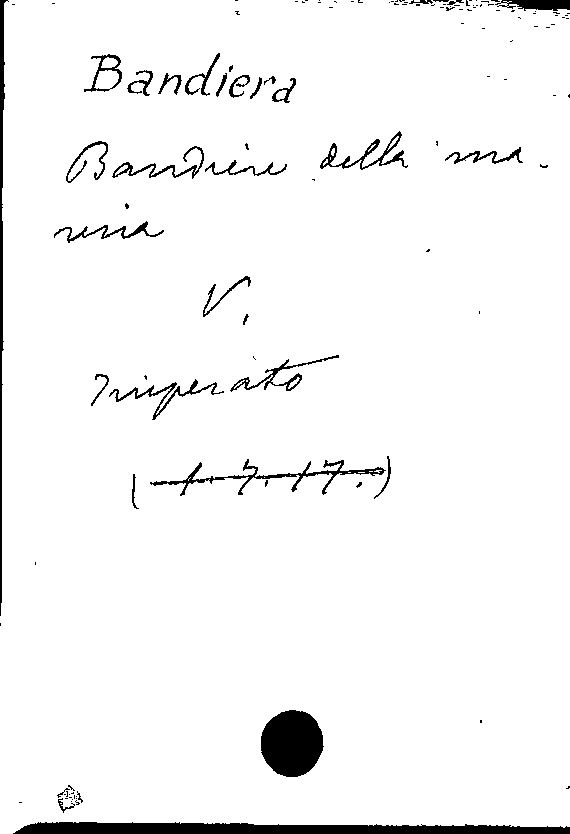 Bandiera
Bandiere della ma-
rina
V.
Imperato
(1.7.17.)